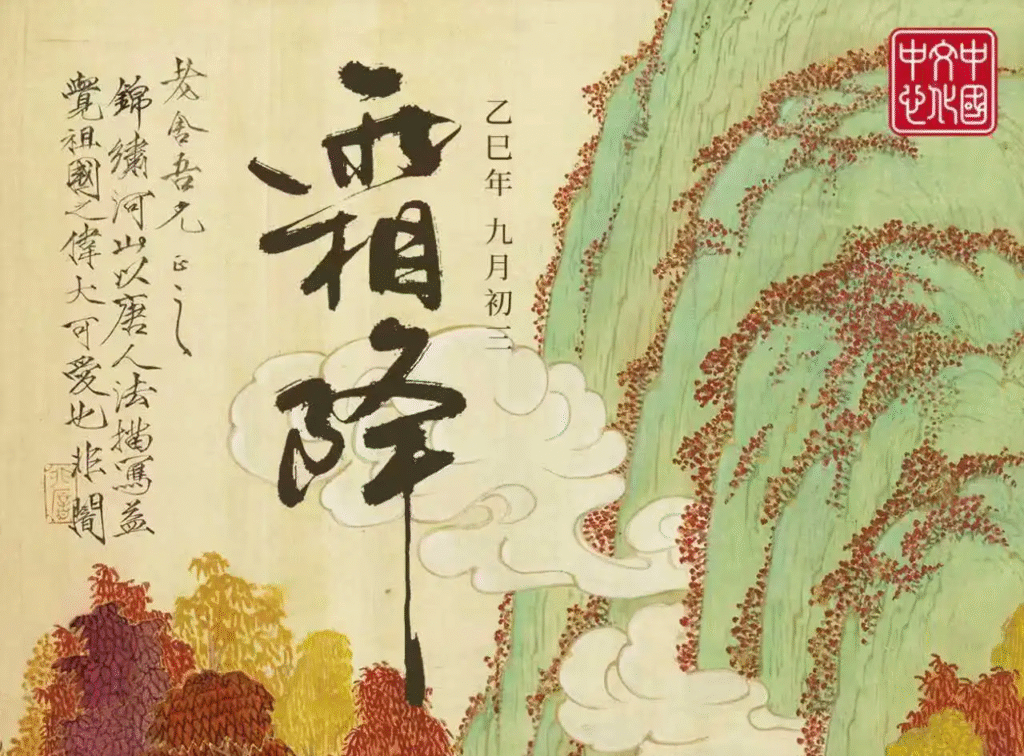 中國
文化
中心
乙巳年 九月初三
霜降
老舍吾兄正之
錦繡河山以唐人法描寫益
覺祖國之偉大可愛也非闇